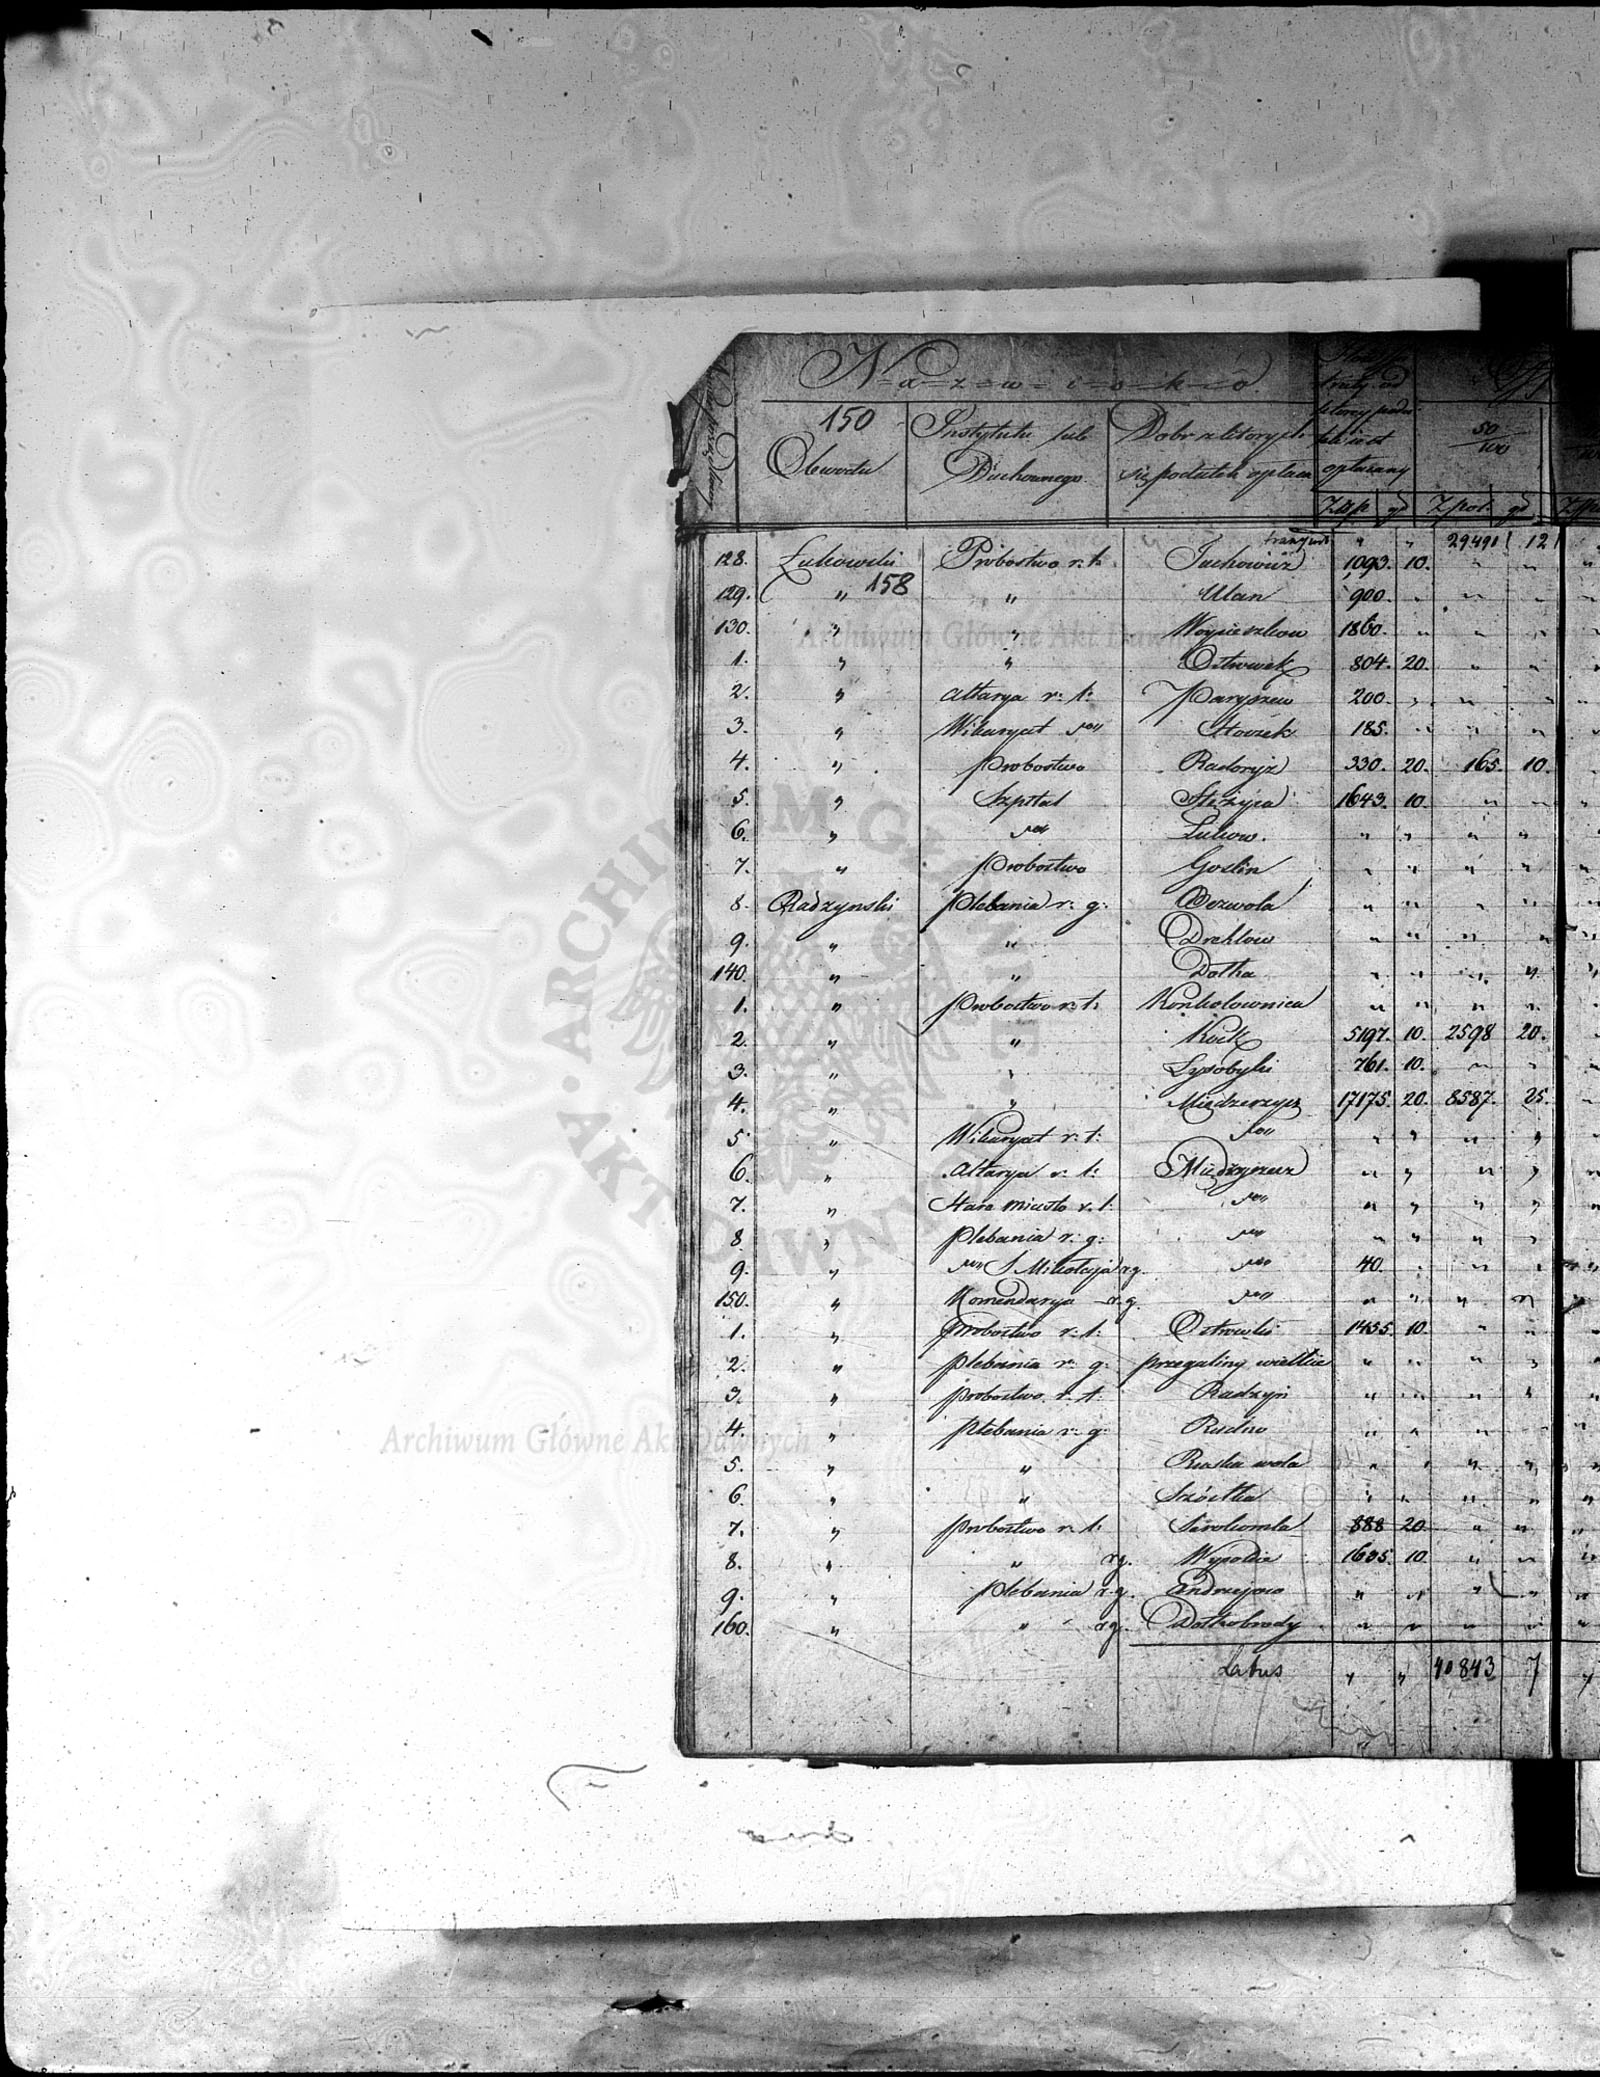 N=a=z=w=i=s=k=o
150
Obwodu
Instytutu lub
Duchownego
Dobr z których
się podatek opłaca
opłacany
50
100
Złp gr Zpol: gr
transport " " 29491 12
128. Łukowski Probostwo r: ł: Tuchowicz 1,093. 10. " "
129. " 158 " Ulan 900. " " "
130. " " Woycieszkow 1860. " " "
1. " " Ostrowek 804. 20. " "
2. " Altarya r: ł: Paryszew 200. " " "
3. " Wikaryat Stoczek 185. " " "
4. " Probostwo Radoryż 330. 20. 165. 10.
5. " Szpital Stężyca 1643. 10. " "
6. " Łukow. " " " "
7. " Probostwo Goslin " " " "
8. Radzynski Plebania r: g: Bezwola " " " "
9. " " Drehlow " " " "
140. " " Dołha " " " "
1. " Probostwo r: ł: Konkolownica " " " "
2. " " Kock 5197. 10. 2598 20.
3. " " Łysobyki 761. 10. " "
4. " " Międzerzycz 17175. 20. 8587. 25.
5. " Wikaryat r: ł: " " " "
6. " Altarya r: ł: Międzyrzecz " " " "
7. " Stare Miasto r. ł: " " " "
8. " Plebania r: g: " " " "
9. " S. Mikołaja r.g. 40. " " "
150. " Komendarya r. g. " " " "
1. " Probostwo r: ł: Ostrowki 1455. 10. " "
2. " Plebania r: g: przegaliny wielkie " " " "
3. " Probostwo r. ł: Radzyń " " " "
4. " Plebania r: g: Rudno " " " "
5. " " Ruska wola " " " "
6. " " Szóstka " " " "
7. " Probostwo r: ł: Serokomla 888 20 " "
8. " " rg. Wysokie 1635. 10. " "
9. " Plebania r.g. Andrzejow " " " "
160. " " rg. Dołhobrody " " " "
Latus " " 40843 7 "
Archiwum Główne Akt Dawnych
Archiwum Główne Akt Dawnych
ARCHIWUM GŁÓWNE AKT DAWNYCH